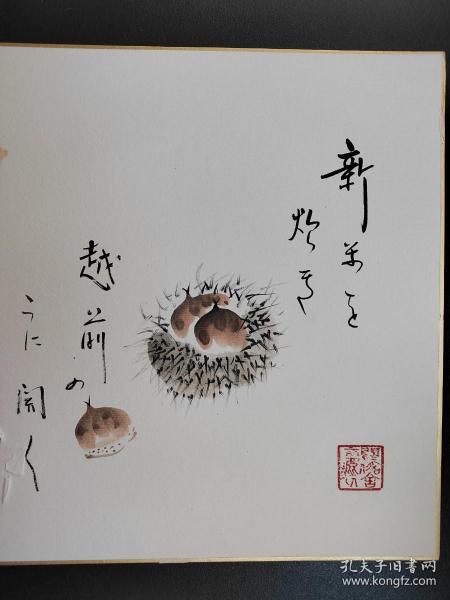 新米を
炊き
越前の
うに開く
孔夫子旧书网
www.kongfz.com